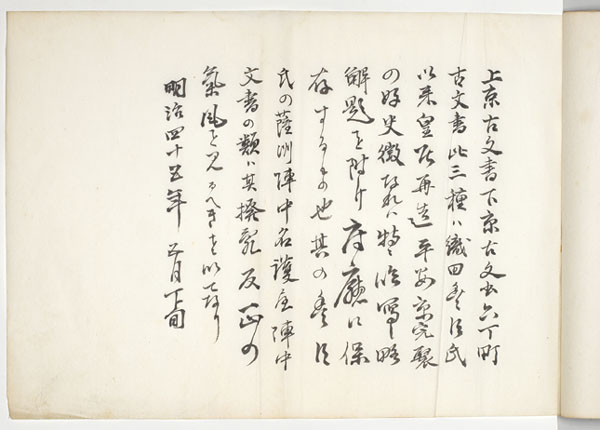 上京古文書下京古文書六丁町
古文書此三種ハ織田豊臣氏
以来皇居再造平安京完製
の好史徴なれハ特ニ臨写し略
解題を附け府庁ニ保
存するもの也其の豊臣
氏の薩洲陣中名護屋陣中
文書の類ハ其撥乱反正の
気風を見るへきを以てなり
明治四十五年五月下旬